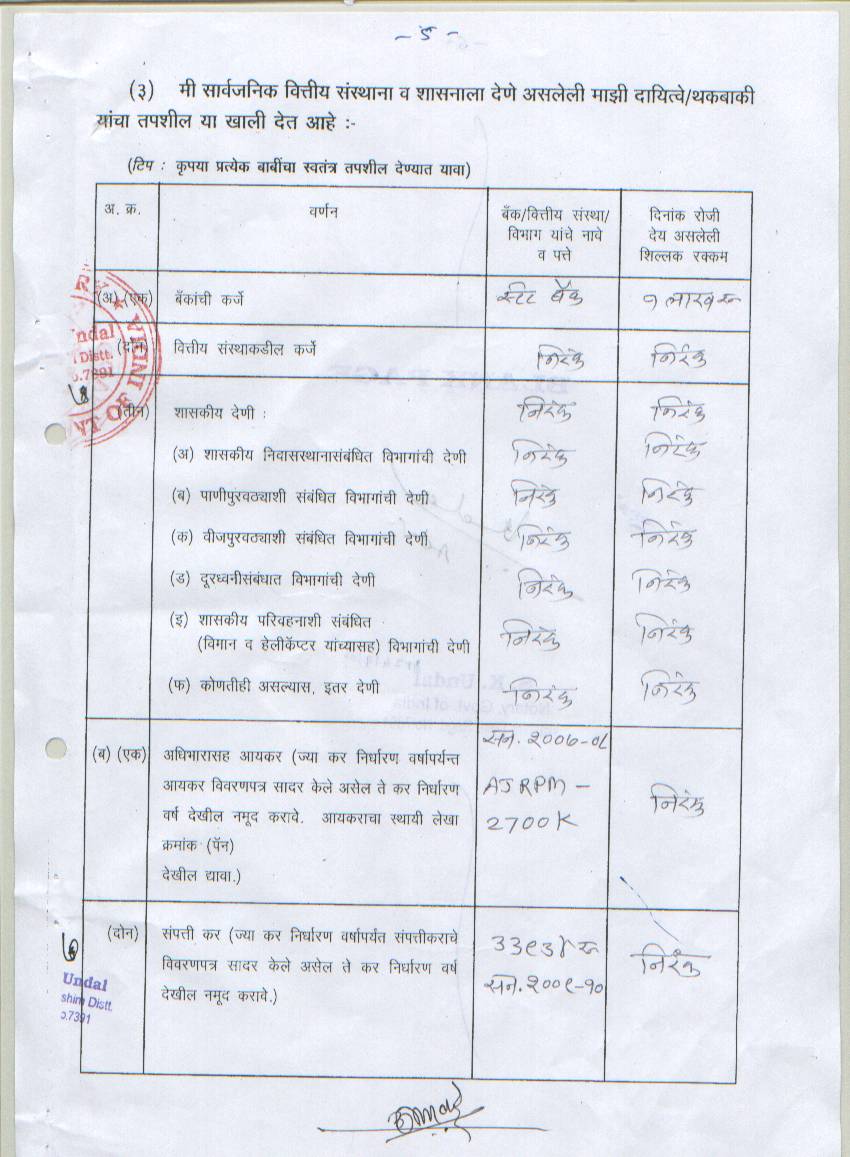 - ५ -
(३) मी सार्वजनिक वित्तीय संस्थाना व शासनाला देणे असलेली माझी दायित्वे/थकबाकी
यांचा तपशील या खाली देत आहे :-
(टिप : कृपया प्रत्येक बाबींचा स्वतंत्र तपशील देण्यात यावा)
अ. क्र. वर्णन बँक/वित्तीय संस्था/ दिनांक रोजी
विभाग यांचे नावे देय असलेली
व पत्ते शिल्लक रक्कम
(अ) (एक) बँकांची कर्जे स्टेट बँक १ लाख रु
(दोन) वित्तीय संस्थाकडील कर्जे निरंक निरंक
(तीन) शासकीय देणी : निरंक निरंक
(अ) शासकीय निवासस्थानासंबंधित विभागांची देणी निरंक निरंक
(ब) पाणीपुरवठ्याशी संबंधित विभागांची देणी निरंक निरंक
(क) वीजपुरवठ्याशी संबंधित विभागांची देणी निरंक निरंक
(ड) दूरध्वनीसंबंधात विभागांची देणी निरंक निरंक
(इ) शासकीय परिवहनाशी संबंधित
(विमान व हेलीकॅप्टर यांच्यासह) विभागांची देणी निरंक निरंक
(फ) कोणतीही असल्यास, इतर देणी निरंक निरंक
सन. २००७-०८
(ब) (एक) अधिभारासह आयकर (ज्या कर निर्धारण वर्षापर्यन्त
आयकर विवरणपत्र सादर केले असेल ते कर निर्धारण AJRPM -
वर्ष देखील नमूद करावे. आयकराचा स्थायी लेखा 2700K निरंक
क्रमांक (पॅन)
देखील द्यावा.)
(दोन) संपत्ती कर (ज्या कर निर्धारण वर्षापर्यंत संपत्तीकराचे ३३९३४ रु
विवरणपत्र सादर केले असेल ते कर निर्धारण वर्ष निरंक
देखील नमूद करावे.) सन. २००९-१०
ndal
Distt.
.7391
INDIA
NT OF
Undal
shim Distt.
.7391